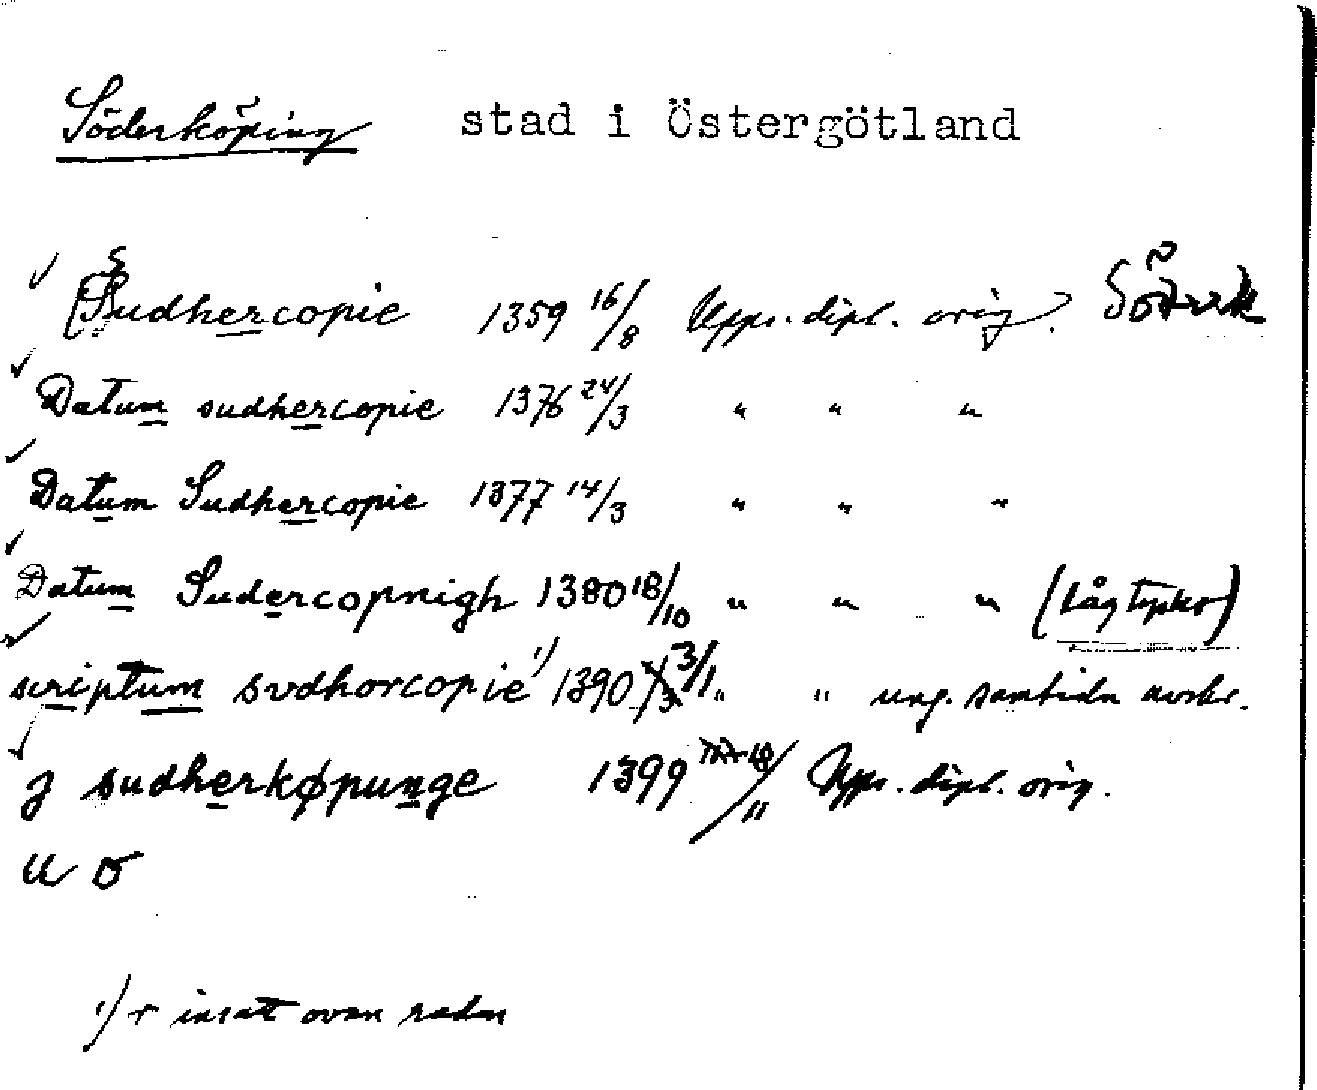 Söderköping stad i Östergötland
Sudhercopie 1359 16/8 Upps. dipl. orig.
Datum sudhercopie 1376 24/3 " " "
Datum Sudhercopie 1377 14/3 " " "
Datum Sudercopnigh 1380 18/10 " " " (Lågtysk)
scriptum svdhorcopie 1) 1390 3/1 " " ung. samtida avskr.
J sudherkøpunge 1399 /11 Upps. dipl. orig.
u ö
1) r insatt ovan raden